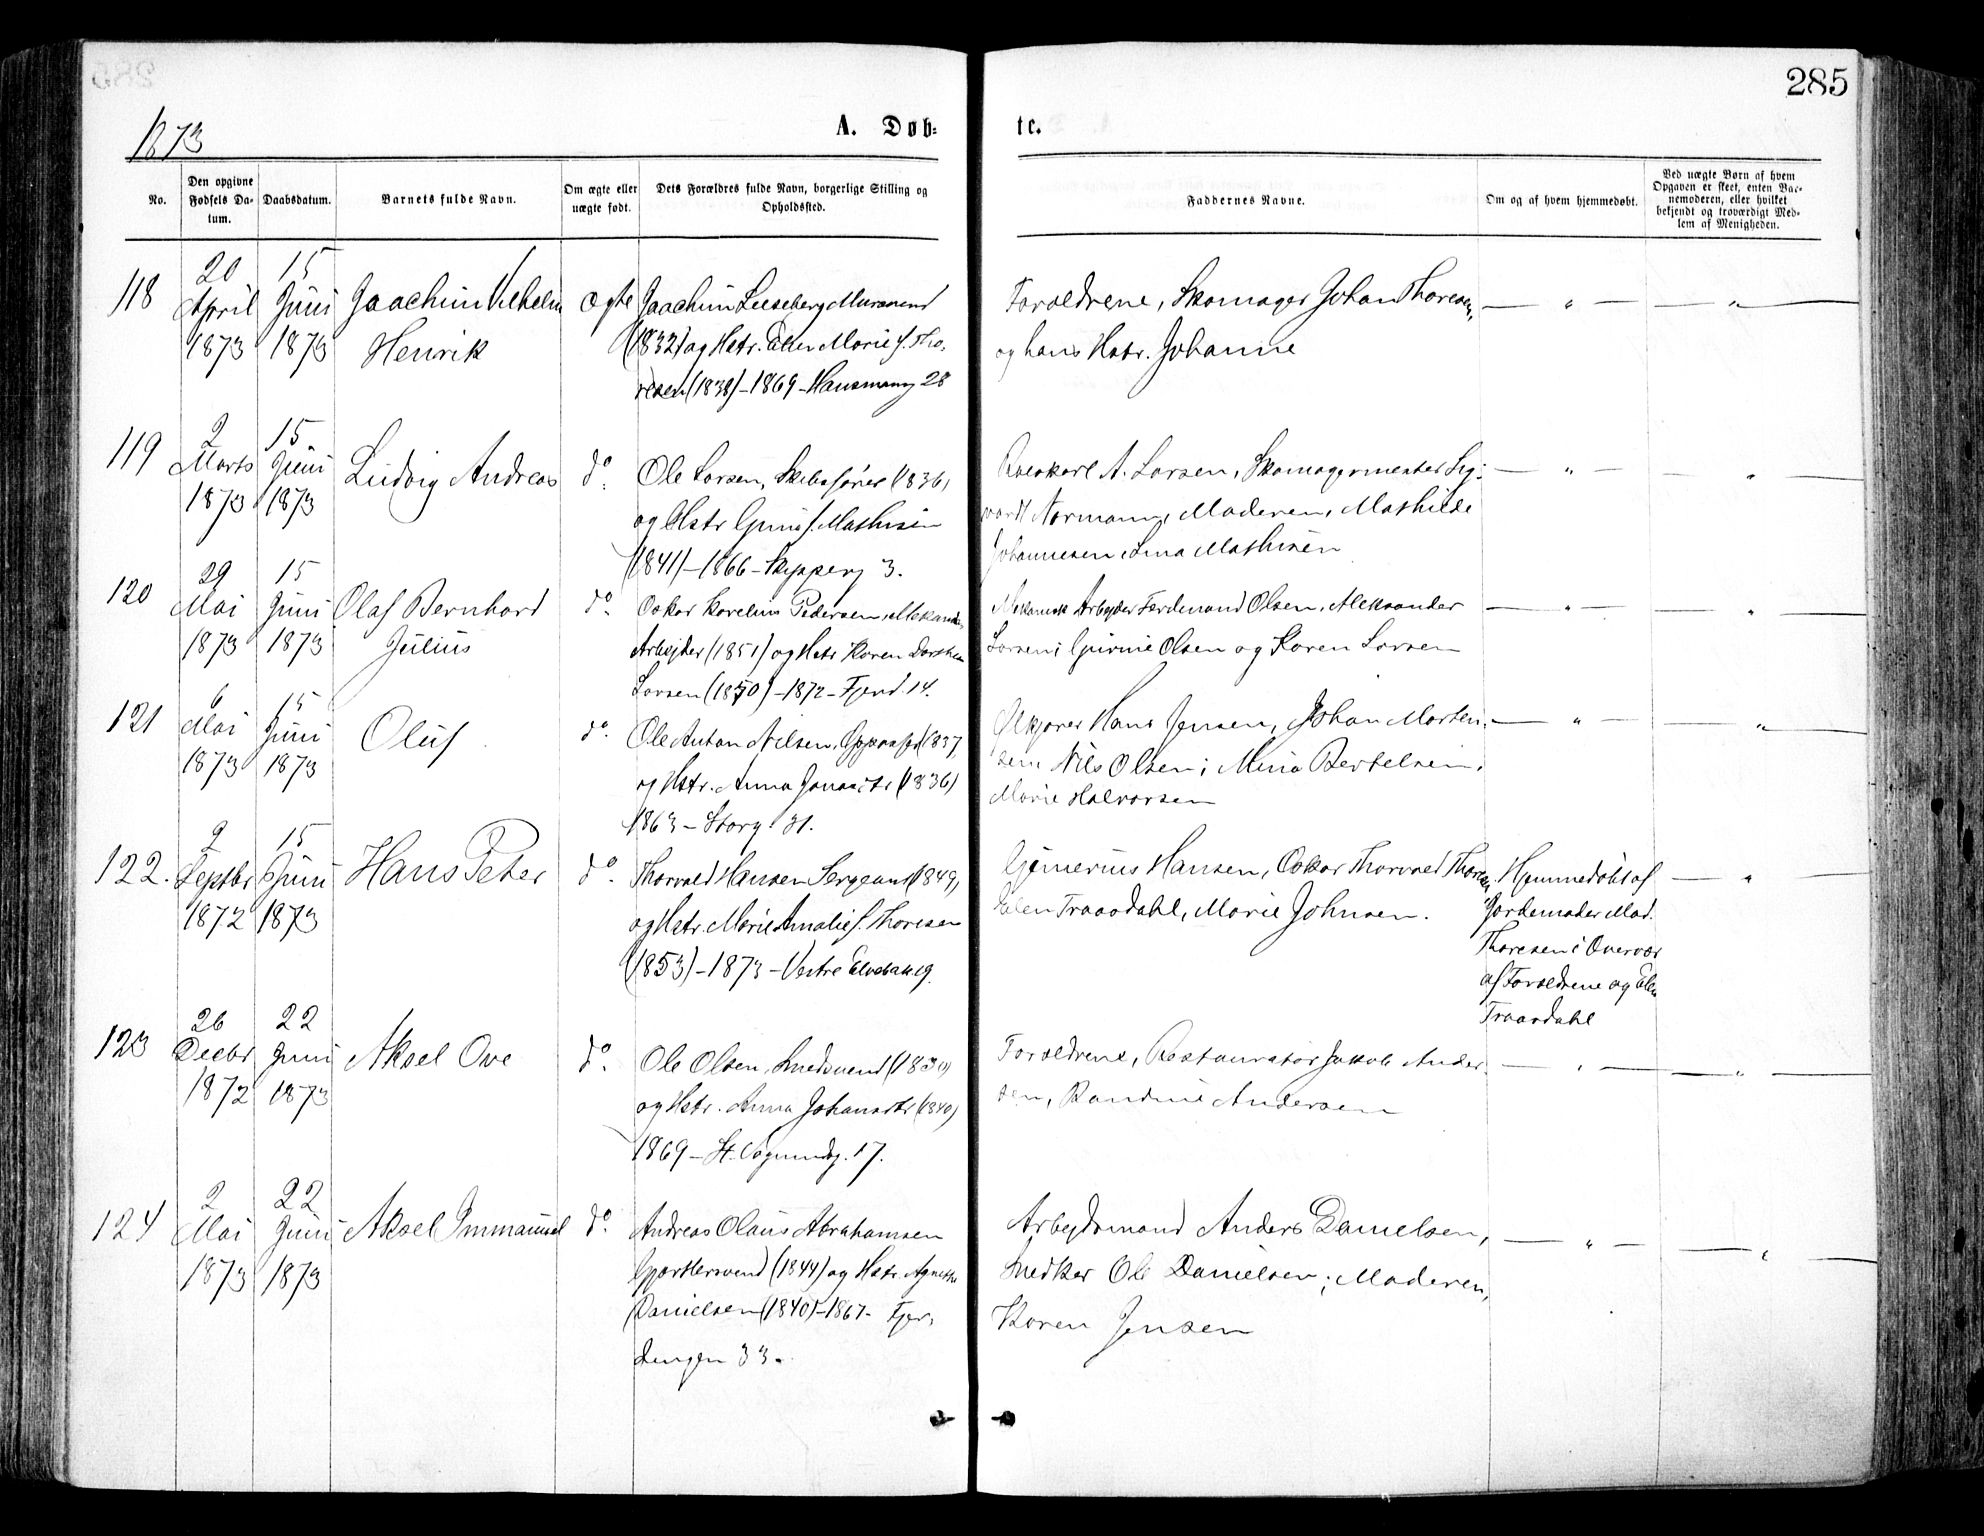 285
1873
A. Døb-
te.
No.
Den opgivne Fødsels Da-tum.
Daabsdatum.
Barnets fulde Navn.
Om ægte eller uægte født.
Dets Forældres fulde Navn, borgerlige Stilling og Opholdssted.
Faddernes Navne.
Om og af hvem hjemmedøbt.
Ved uægte Børn af hvem Opgaven er skeet, enten Bar-nemoderen, eller hvilket bekjendt og troværdigt Med-lem af Menigheden.
118
20 April 1873
15 Juni 1873
Joachim Vilhelm
Henrik
ægte
Joachim Leeseberg Mursvend
(1832) og Hstr. Ellen Marie f. Tho-
resen (1838) - 1869 - Hausmansg 28
Forældrene, Skomager Johan Thoresen,
og hans Hstr. Johanne
— " —
— " —
119
2 Marts 1873
15 Juni 1873
Ludvig Andreas
do.
Ole Larsen, Skibsfører (1836)
og Hstr. Gunil f. Mathisen
(1841) - 1866 - Skipperg 3.
A. Larsen, Skomagermester Sig-
vardt Normann, Moderen, Mathilde
Johannesen, Lina Mathisen
— " —
"
120
29 Mai 1873
15 Juni 1873
Olaf Bernhard
Julius
do.
Oskar Karelius Pedersen, Mekanisk
Arbejder (1851) og Hstr. Karen Dorthea
Larsen (1850) - 1872 - Fjerd. 14.
Mekanisk Arbejder Ferdinand Olsen, Aleksander
Larsen; Gurine Olsen og Karen Larsen
— " —
"
121
6 Mai 1873
15 Juni 1873
Oluf
do.
Ole Anton Nilsen, (1837)
og Hstr. Anna Jonasdtr (1836)
1863 - Storg. 31.
Ølkjører Hans Jensen, Johan Morten-
sen, Nils Olsen; Mina Bertelsen,
Marie Halvorsen
— " —
— " —
122.
2 Septbr 1872
15 Juni 1873
Hans Peter
do.
Thorvald Hansen Sergeant (1849),
og Hstr. Marie Amalie f. Thoresen
(1853) - 1873 - Vestre Elvebak 19.
Hansen, Oskar Thorvald Thoresen,
Elen Traaedahl, Marie Johnsen.
Hjemmedøbt af
Jordemoder Mad.
Thoresen i Overvær
af Forældrene og Elen
Traaedahl
— " —
123
26 Decbr 1872
22 Juni 1873
Aksel Ove
do.
Ole Olsen, Smedsvend (1839)
og Hstr. Anna Johansdtr (1840)
1869 - St. Vognmdsg. 17.
Forældrene, Restauratør Jakob Ander-
sen, Randine Andersen
— " —
— " —
124
2 Mai 1873
22 Juni 1873
Aksel Immanuel
do.
Andreas Olaus Abrahamsen
Gjørtlersvend (1844) og Hstr. Agnethe
Danielsen (1840) - 1867 - Fjer-
dingen 33.
Arbejdsmand Anders Danielsen,
Snedker Ole Danielsen; Moderen,
Karen Jensen
— " —
— " —